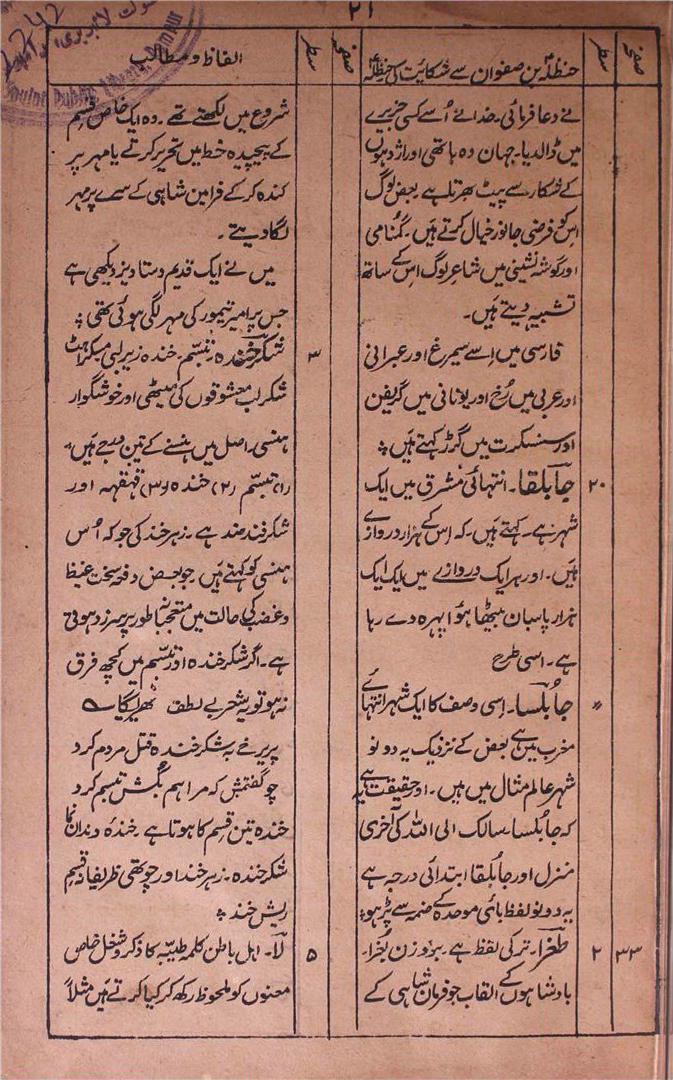 ۲۱
صفحہ
سطر
حنظلہ بن صفوان سے شکائیت کی حنظلہ
نے دعا فرمائی۔ خدا نے اُسے کسی جزیرے
میں ڈالدیا۔ جہان وہ ہاتھی اور اژدہوں
کے شکار سے پیٹ بھرتا ہے بعض لوگ
اس کو فرضی جانور خیال کرتے ہیں۔ گمنامی
اور گوشہ نشینی میں شاعر لوگ اس کے ساتھ
تشبیہ دیتے ہیں۔
فارسی میں اسے سیمرغ اور عبرانی
اور عربی میں رُخ اور یونانی میں گریفن
اور سنسکرت میں گرڑ کہتے ہیں ؞
۲۰
جابلقا۔ انتہائی مشرق میں ایک
شہر ہے۔ کہتے ہیں۔ کہ اس کے ہزار دروازے
ہیں۔ اور ہر ایک دروازے میں ایک ایک
ہزار پاسبان بیٹھا ہؤا پہرہ دے رہا
ہے۔ اسی طرح
〃
جابلسا۔ اسی وصف کا ایک شہر انتہائے
مغرب میں ہے بعض کے نزدیک یہ دونو
شہر عالم مثال میں ہیں۔ اور حقیقت یہ ہے
کہ جابلسا سالک الی اللہ کی آخری
منزل اور جابلقا ابتدائی درجہ ہے
یہ دونو لفظ بائی موحدہ کے ضمہ سے پڑہو ؞
۳۳
۲
طغرا۔ ترکی لفظ ہے۔ بروزن بُغرا۔
بادشاہوں کے القاب جو فرمان شاہی کے
صفحہ
سطر
الفاظ و مطالب
شروع میں لکھتے تھے۔ وہ ایک خاص قسم
کے پیچیدہ خط میں تحریر کرتے یا مہر پر
کندہ کر کے فرامین شاہی کے سرے پر مہر
لگا دیتے۔
میں نے ایک قدیم دستاویز دیکھی ہے
جس پر امیر تیمور کی مہر لگی ہوئی تھی ؞
۳
شکر خندہ۔ تبسم۔ خندہ زیرلبی میکراہٹ
شکر لب معشوقوں کی میٹھی اور خوشگوار
ہنسی راصل میں ہنسنے کے تین درجے ہیں۔
(۱) تبسّم (۲) خندہ (۳) قہقہہ اور
شکرفند ضد ہے۔ زہر خند کی جو کہ اُس
ہنسی کو کہتے ہیں جو بعض دفہ سخت غیظ
و غضب کی حالت میں متعجبہ طور پر سرزد ہوتی
ہے۔ اگر شکر خندہ اور تبسّم میں کچھ فرق
نہ ہو تو یہ شعر بے لطف ٹھہریگا ؎
پریرخے بہ شکر خندہ قتل مردم کرد
چو گفتمش کہ مرا ہم بکُش تبسم کرد
خندہ تین قسم کا ہوتا ہے۔ خندہ دندان نما
شکر خندہ۔ زہر خند اور چوتھی ظریفانہ قسم
ریش خند ؞
۵
لآ۔ اہل باطن کلمہ طیّبہ کا ذکر و شغل خاص
معنوں کو ملحوظ رکھ کر کیا کرتے ہیں مثلاً